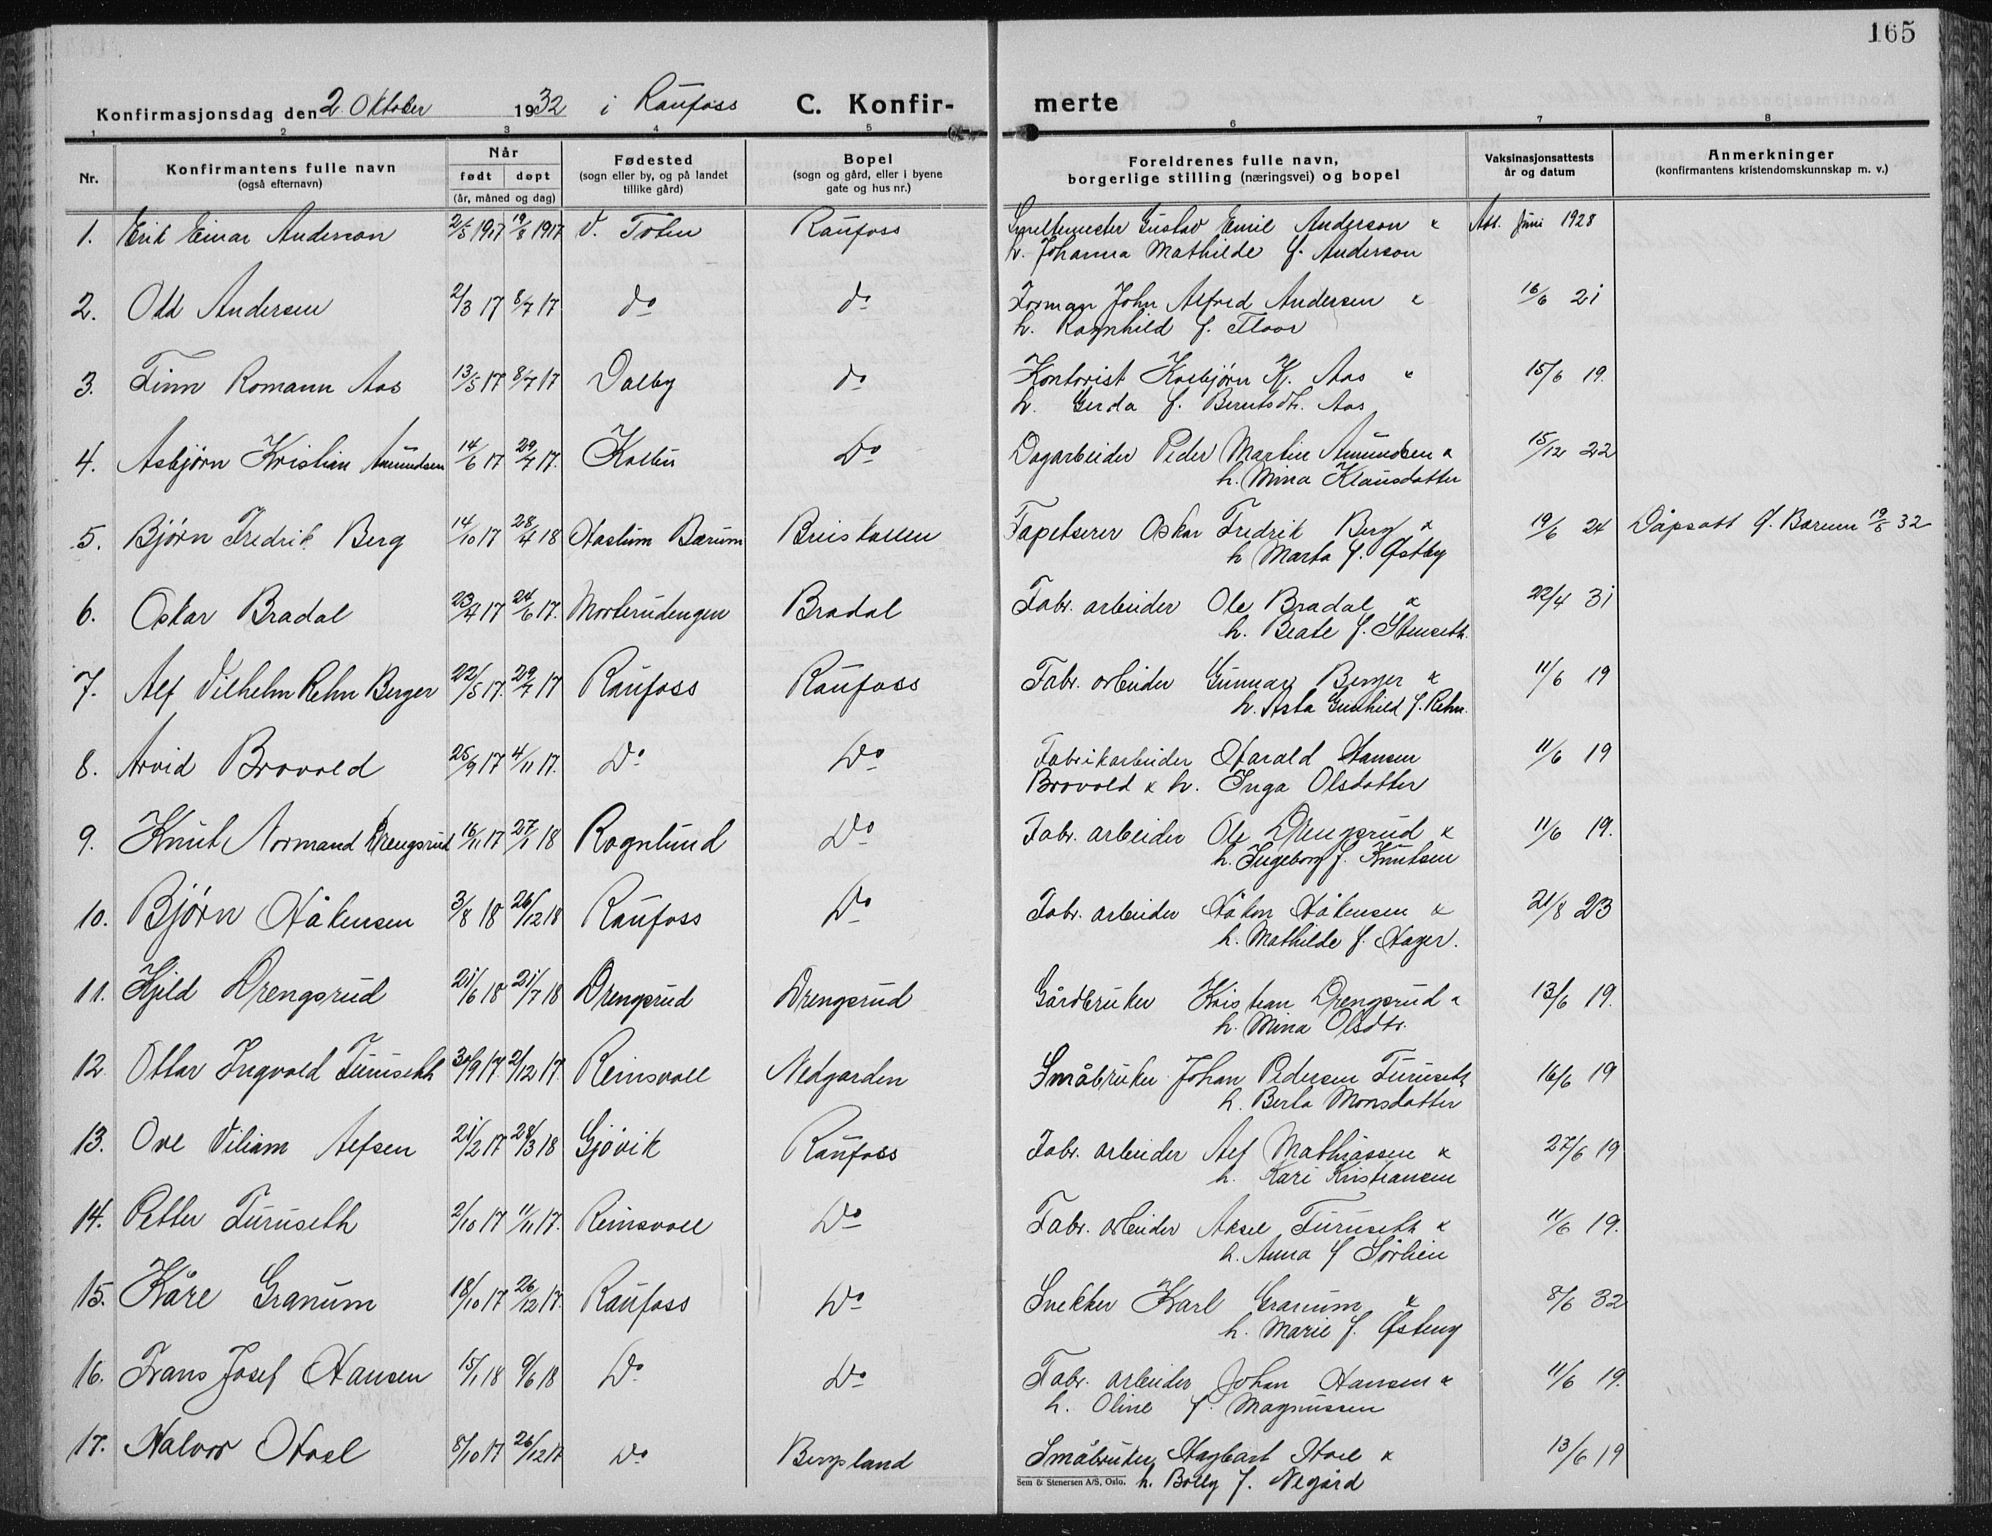 165
Konfirmasjonsdag den 2. Oktober 1932 i Raufoss C. Konfir- merte
1 2 3 4 5 6 7 8
Nr. Konfirmantens fulle navn (også efternavn) Når født døpt (år, måned og dag) Fødested (sogn eller by, og på landet tillike gård) Bopel (sogn og gård, eller i byene gate og hus nr.) Foreldrenes fulle navn, borgerlige stilling (næringsvei) og bopel Vaksinasjonsattests år og datum Anmerkninger (konfirmantens kristendomskunnskap m. v.)
1. Erik Einar Anderson 2/5 1917 19/8 1917 V. Toten Raufoss Smeltemester Gustav Emil Anderson & Att. Juni 1928
h. Johanna Mathilde f. Anderson
2. Odd Andersen 2/3 17 8/7 17. do do Forman John Alfred Andersen & 16/6 21
h. Ragnhild f. Floor
3. Finn Romann Aas 13/5 17 8/7 17 Dalby do Kontorist Kolbjørn K. Aas & 15/6 19.
h. Gerda f. Berntsdt. Aas
4. Asbjørn Kristian Amundsen 14/6 17 29/7 17. Kolbu Do Dagarbeider Peder Martin Amundsen & 15/12 22
h. Mina Klausdatter
5. Bjørn Fredrik Berg 14/10 17 28/4 18 Haslum Bærum Breiskallen Tapetserer Oskar Fredrik Berg & 19/6 24 Dåpsatt f. Bærum 19/8 32
h Marta f. Østby
6. Oskar Bradal 23/4 17 24/6 17. Morterudengen Bradal Fabr. arbeider Ole Bradal & 22/4 31
h. Beate f. Stenseth.
7. Alf Vilhelm Rehn Berger 22/5 17. 29/7 17 Raufoss Raufoss Fabr. arbeider Gunnar Berger & 11/6 19
h. Asta Gunhild f. Rehn.
8. Arvid Brovold 25/9 17 4/11 17. Do Do Fabrikarbeider Harald Hansen 11/6 19
Brovold & h. Inga Olsdatter
9. Knut Normand Drengsrud 16/11 17 27/1 18 Rognlund Do Fabr. arbeider Ole Drengsrud & 11/6 19.
h. Ingeborg f. Knutsen
10. Bjørn Håkensen 3/8 18 26/12 18 Raufoss Do Fabr. arbeider Håkon Håkensen & 21/8 23
h. Mathilde f. Hager.
11. Kjeld Drengsrud 21/6 18 21/7 18 Drengsrud Drengsrud Gårdbruker Kristian Drengsrud & 13/6 19.
h. Mina Olsdtr.
12 Ottar Ingvald Furuseth 30/9 17. 2/12 17. Reinsvoll Nedgarden Småbruker Johan Pedersen Furuseth 16/6 19
h. Berta Monsdatter
13. Ove Viliam Alfsen 21/2 17 28/3 18 Gjøvik Raufoss Fabr. arbeider Alf Mathiassen & 27/6 19
h. Kari Kristiansen
14. Petter Furuseth 2/10 17 11/11 17. Reinsvoll Do Fabr. arbeider Aksel Furuseth & 11/6 19.
h. Anna f Sørlien
15. Kåre Granum 18/10 17 26/12 17. Raufoss Do Snekker Karl Granum & 8/6 32
h. Marie f. Østeng
16. Frans Josef Hansen 15/1 18 9/6 18 Do Do Fabr. arbeider Johan Hansen & 11/6 19.
h. Oline f. Magnussen
17. Halvor Hoel 8/10 17 26/12 17 Do Bergsland Småbruker Hagbart Hoel & 13/6 19
Sem & Stenersen A/S, Oslo. h. Bolly f. Negård